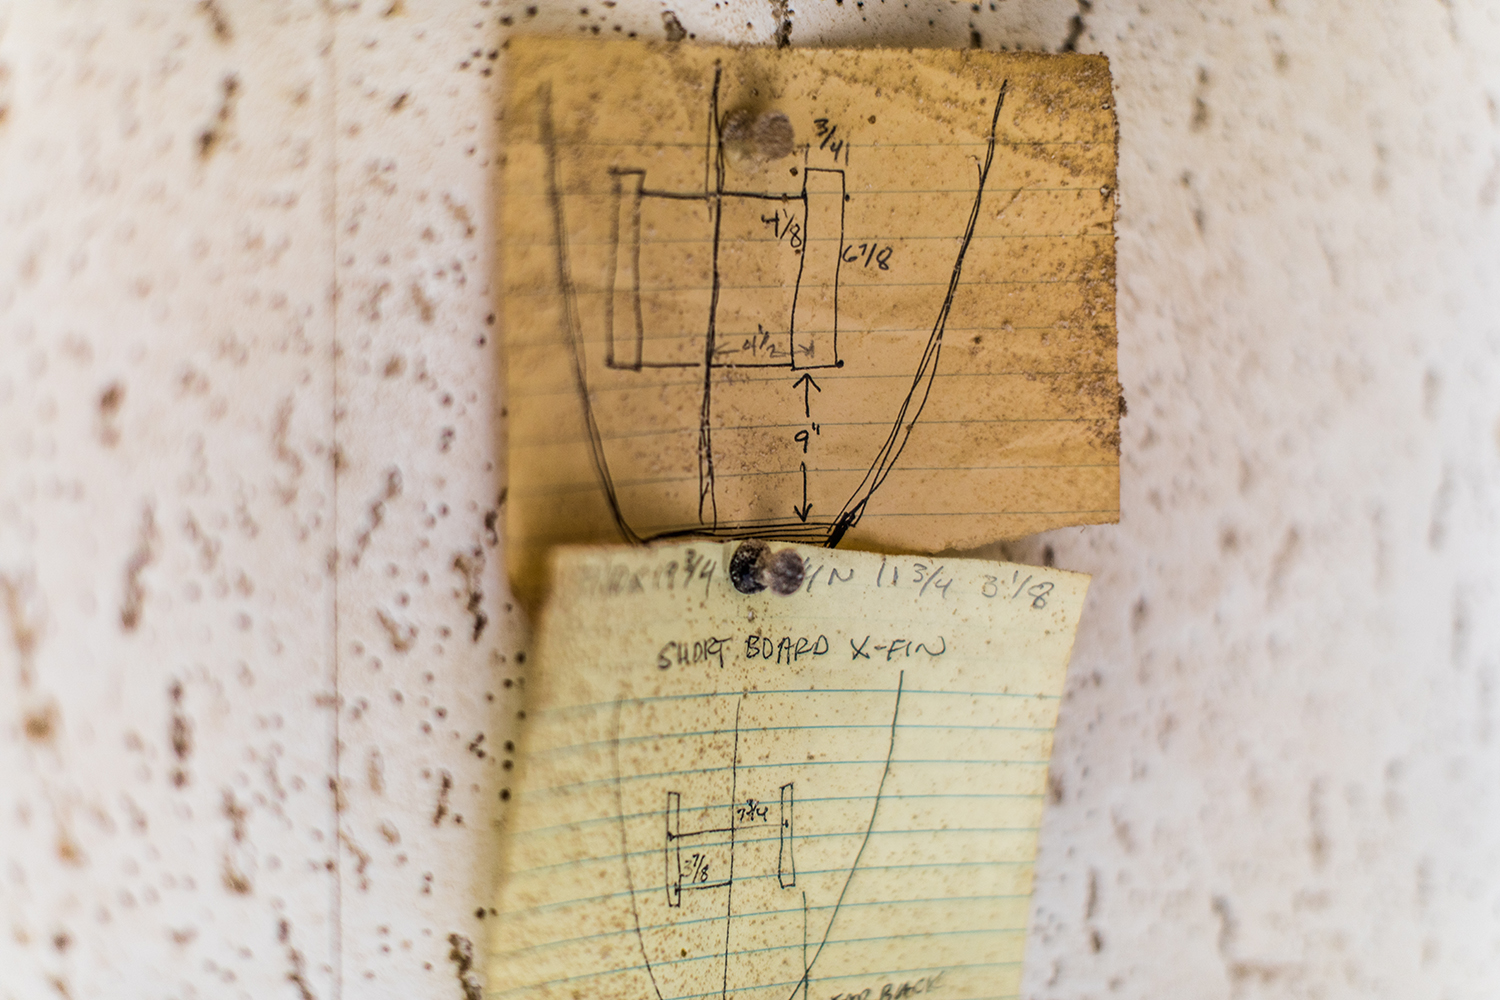 3/4
4 1/8
6 7/8
4 1/2
9"
3/4 11 3/4 3 1/8
SHORT BOARD X-FIN
7 3/4
3 7/8
BACK